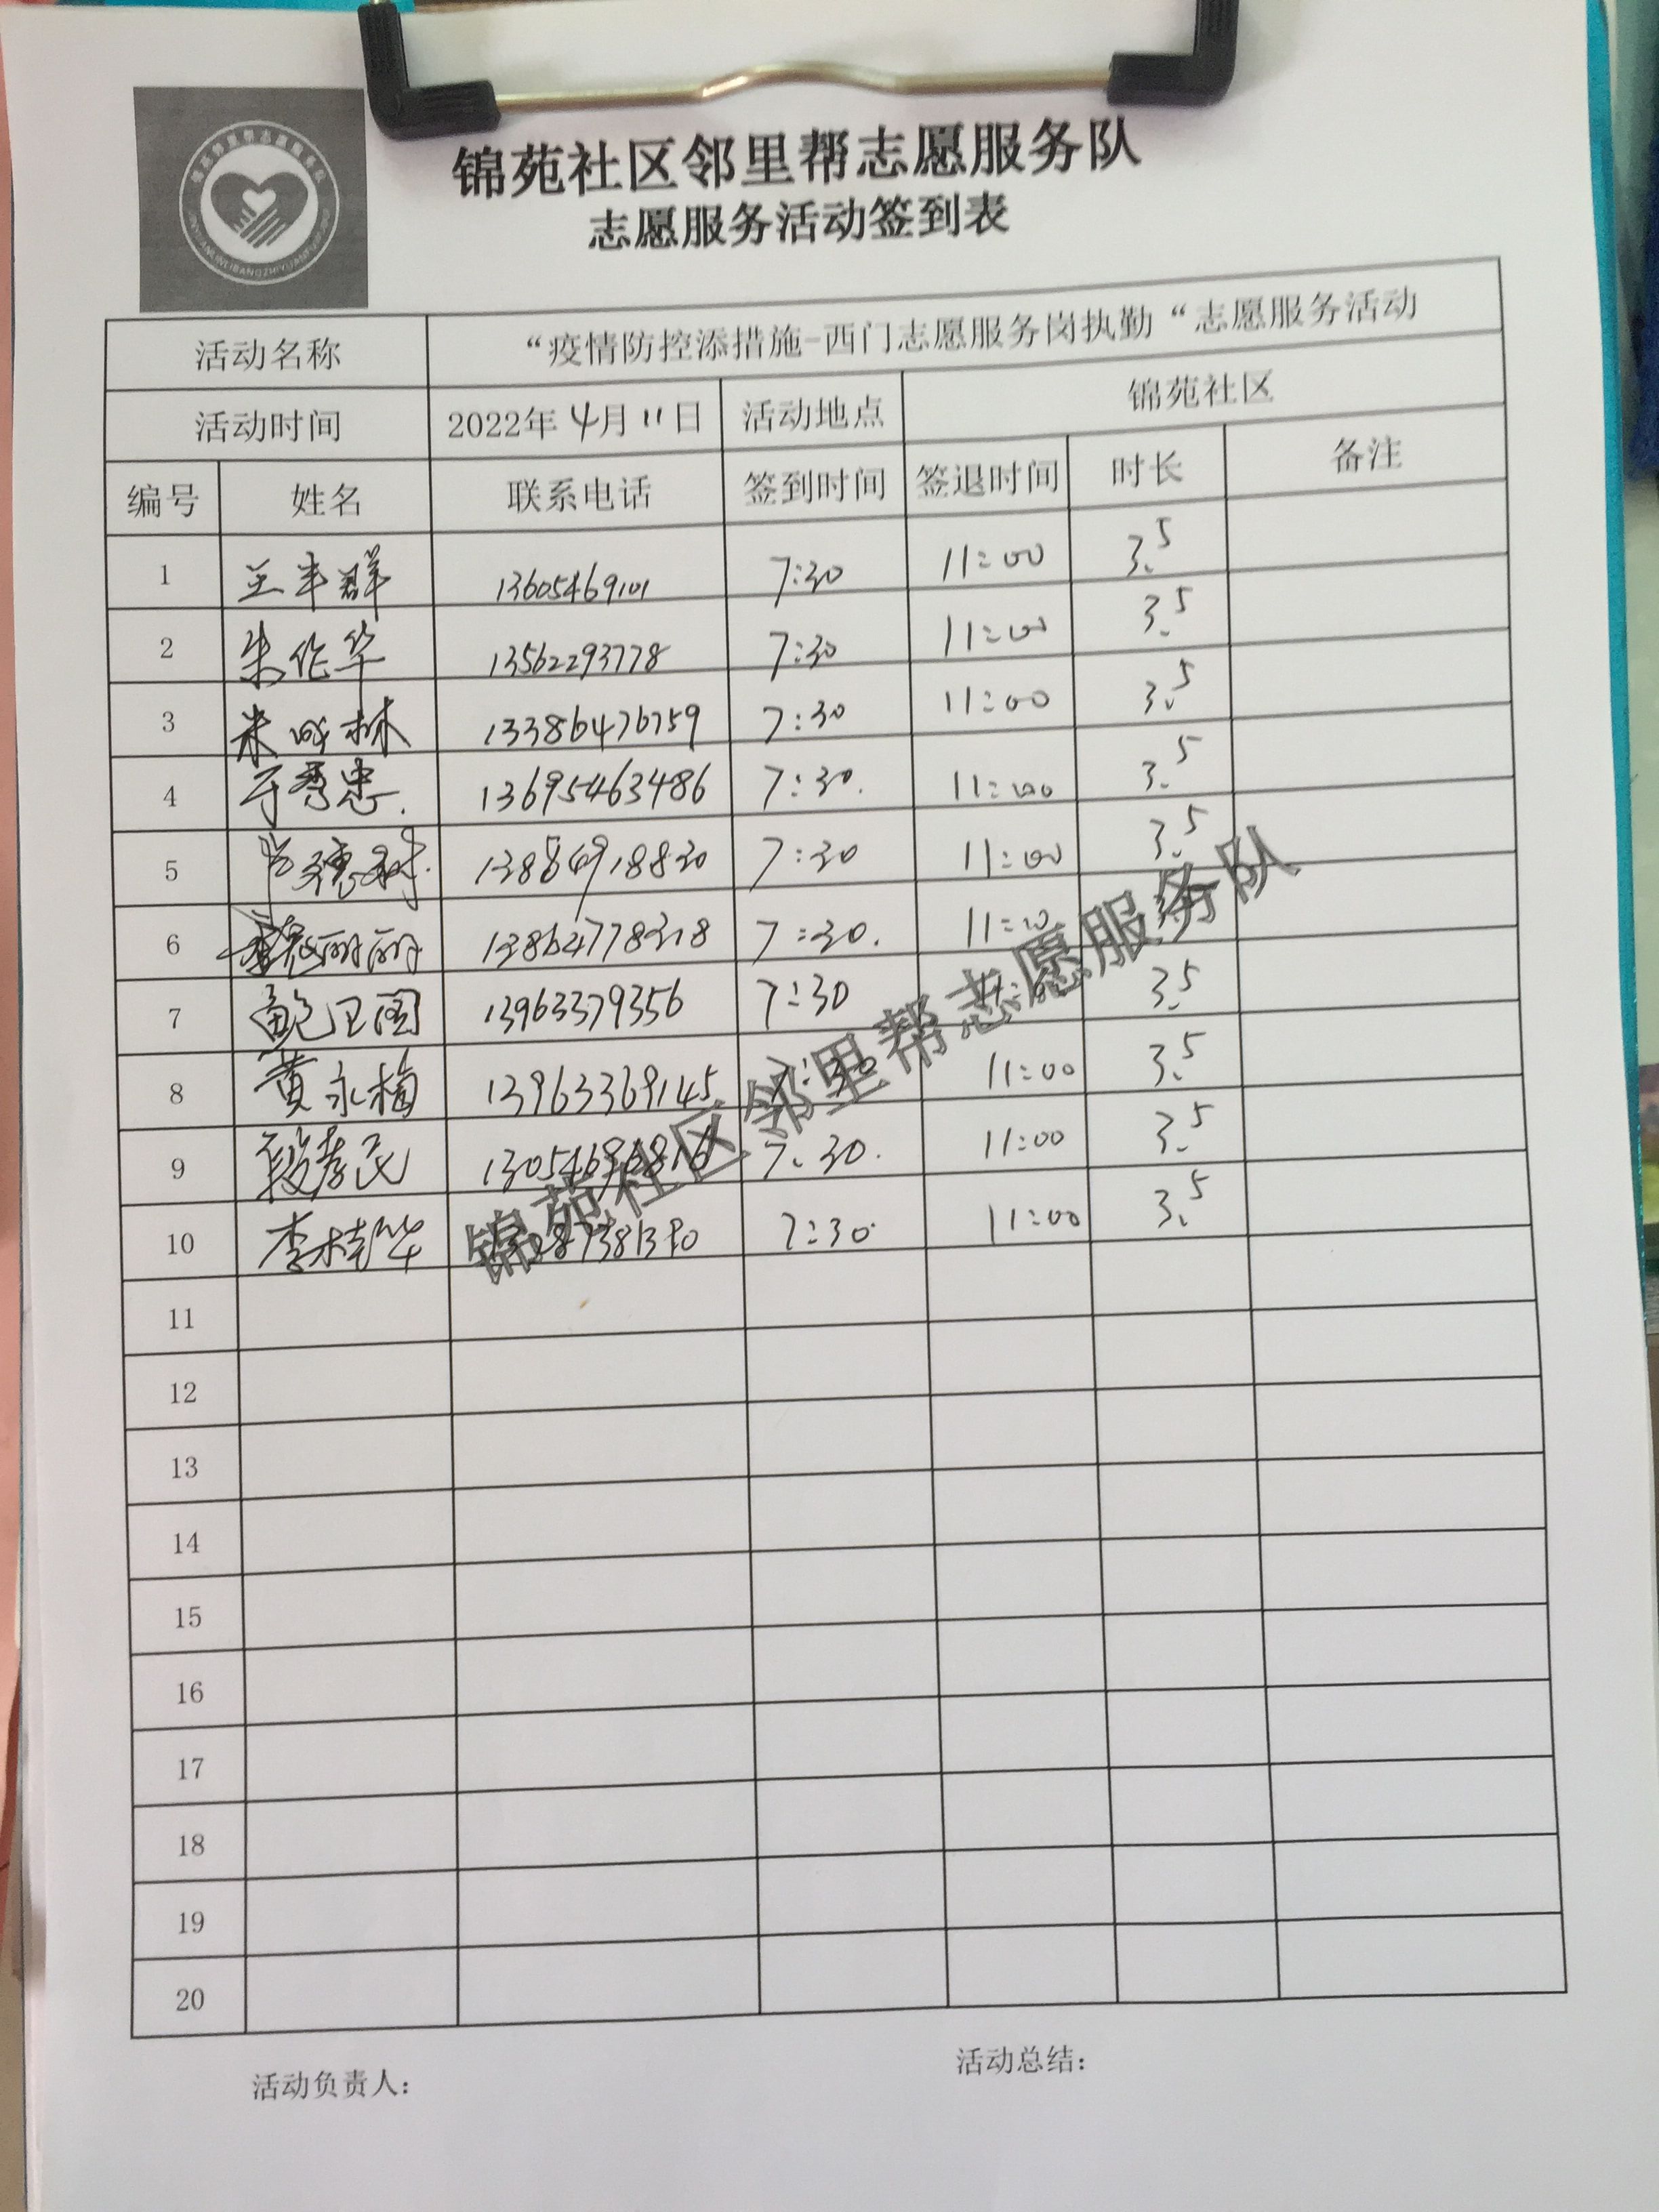 锦苑社区邻里帮志愿服务队
志愿服务活动签到表
活动名称 “疫情防控添措施-西门志愿服务岗执勤“志愿服务活动
活动时间 2022年4月11日 活动地点 锦苑社区
编号 姓名 联系电话 签到时间 签退时间 时长 备注
1 兰丰群 13605469101 7:30 11:00 3.5
2 朱作华 13562293778 7:30 11:00 3.5
3 13386476759 7:30 11:00 3.5
4 于秀忠 13695463486 7:30 11:00 3.5
5 7:30 11:00 3.5
6 7:30 11:00
7 鲍卫国 13963379356 7:30 3.5
8 黄永梅 13963369145 7:30 11:00 3.5
9 段孝民 7:30 11:00 3.5
10 李桂华 7:30 11:00 3.5
11
12
13
14
15
16
17
18
19
20
锦苑社区邻里帮志愿服务队
活动负责人： 活动总结：